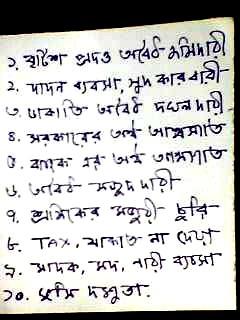 ১. বৃটিশ প্রদত্ত অবৈধ জমিদারী
২. দাদন ব্যবসা, সুদ কারবারী
৩. ডাকাতি অবৈধ দখলদারী.
৪. সরকারের অর্থ আত্মসাত
৫. ব্যাংক এর অর্থ আত্মসাত
৬. অবৈধ মজুদদারী
৭. শ্রমিকের মজুরী চুরি
৮. TAX, যাকাত না দেয়া
৯. মাদক, মদ, নারী ব্যবসা
১০. ভূমি দস্যুতা.